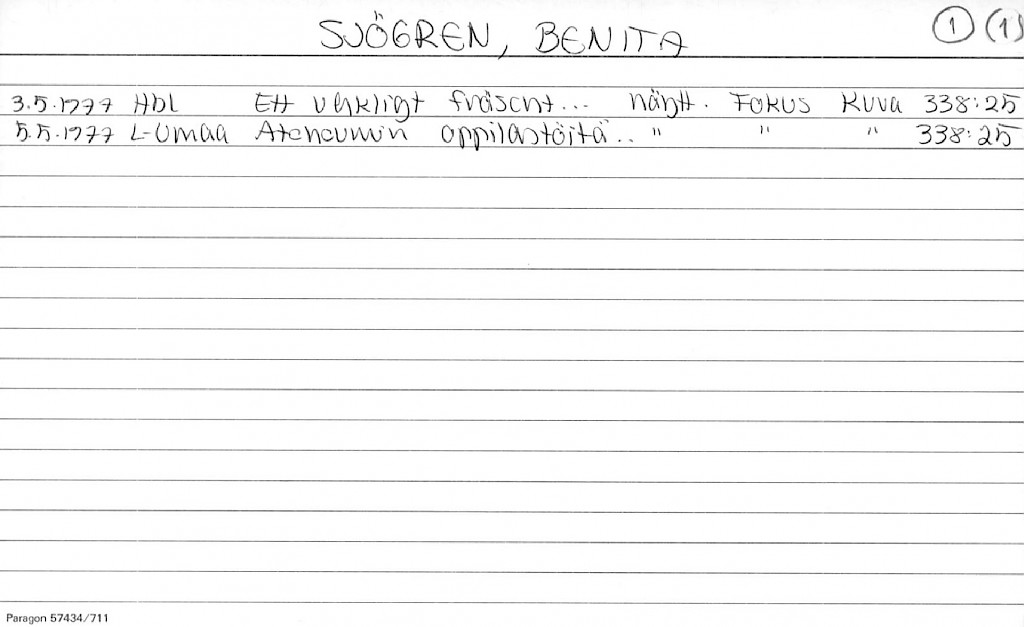 SJÖGREN, BENITA 1 (1)
3.5.1977 Hbl Ett verkligt fräscht... näytt. Fokus Kuva 338:25
5.5.1977 L-Umaa Ateneumin oppilastöitä.. " " " 338:25
Paragon 57434/711